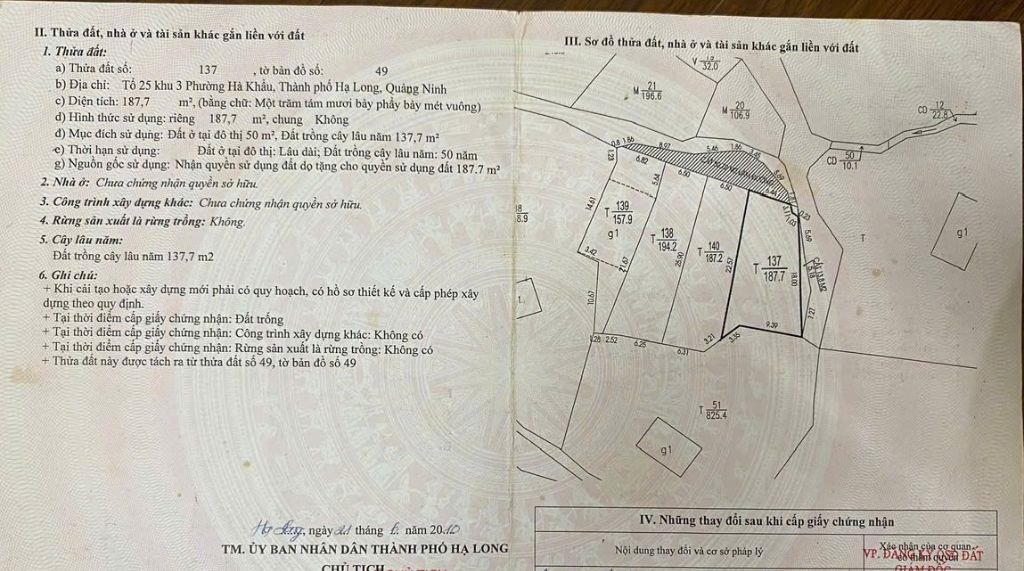 II. Thửa đất, nhà ở và tài sản khác gắn liền với đất
1. Thửa đất:
a) Thửa đất số: 137 , tờ bản đồ số: 49
b) Địa chỉ: Tổ 25 khu 3 Phường Hà Khẩu, Thành phố Hạ Long, Quảng Ninh
c) Diện tích: 187,7 m², (bằng chữ: Một trăm tám mươi bảy phẩy bảy mét vuông)
d) Hình thức sử dụng: riêng 187,7 m², chung Không
đ) Mục đích sử dụng: Đất ở tại đô thị 50 m², Đất trồng cây lâu năm 137,7 m²
e) Thời hạn sử dụng: Đất ở tại đô thị: Lâu dài; Đất trồng cây lâu năm: 50 năm
g) Nguồn gốc sử dụng: Nhận quyền sử dụng đất do tặng cho quyền sử dụng đất 187.7 m²
2. Nhà ở: Chưa chứng nhận quyền sở hữu.
3. Công trình xây dựng khác: Chưa chứng nhận quyền sở hữu.
4. Rừng sản xuất là rừng trồng: Không.
5. Cây lâu năm:
Đất trồng cây lâu năm 137,7 m2
6. Ghi chú:
+ Khi cải tạo hoặc xây dựng mới phải có quy hoạch, có hồ sơ thiết kế và cấp phép xây
dựng theo quy định.
+ Tại thời điểm cấp giấy chứng nhận: Đất trống
+ Tại thời điểm cấp giấy chứng nhận: Công trình xây dựng khác: Không có
+ Tại thời điểm cấp giấy chứng nhận: Rừng sản xuất là rừng trồng: Không có
+ Thửa đất này được tách ra từ thửa đất số 49, tờ bản đồ số 49
Hạ Long, ngày 21 tháng 6 năm 2010
TM. ỦY BAN NHÂN DÂN THÀNH PHỐ HẠ LONG
CHỦ TỊCH
III. Sơ đồ thửa đất, nhà ở và tài sản khác gắn liền với đất
V 32.0
M 21
196.6
M 20
106.9
CD 12
22.8
CD 50
10.1
0.8 1.86 8.97 5.46 1.86
1.23 6.82 5.64 6.50 6.50
14.61
T 139
157.9
g1
3.42
21.67
T 138
194.2
26.90
T 140
187.2
22.57
T 137
187.7
18.00
5.69
7.27
T
g1
10.67
1.28 2.52 6.25 6.31 3.21 3.35 9.39
T 51
825.4
g1
IV. Những thay đổi sau khi cấp giấy chứng nhận
Nội dung thay đổi và cơ sở pháp lý
Xác nhận của cơ quan
có thẩm quyền
VP. ĐĂNG KÝ QSD ĐẤT
GIÁM ĐỐC